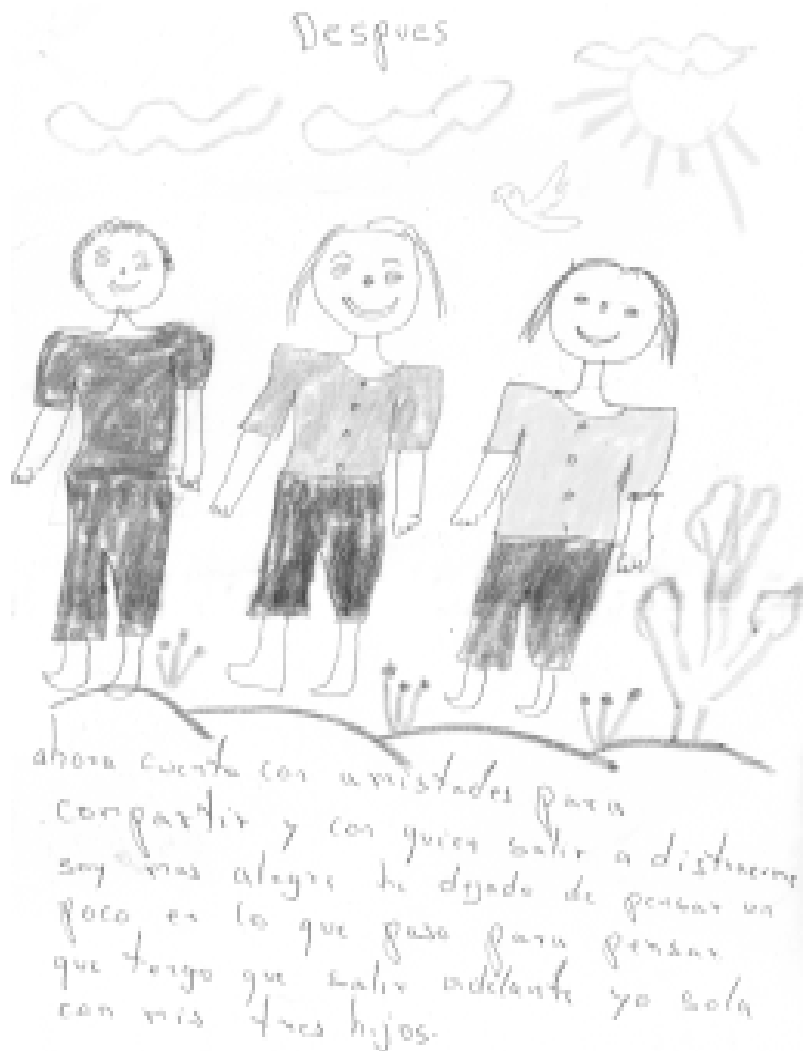 Despues
ahora cuento con amistades para
compartir y con quien salir a distraerme
soy mas alegre he dejado de pensar un
poco en lo que paso para pensar
que tengo que salir adelante yo sola
con mis tres hijos.